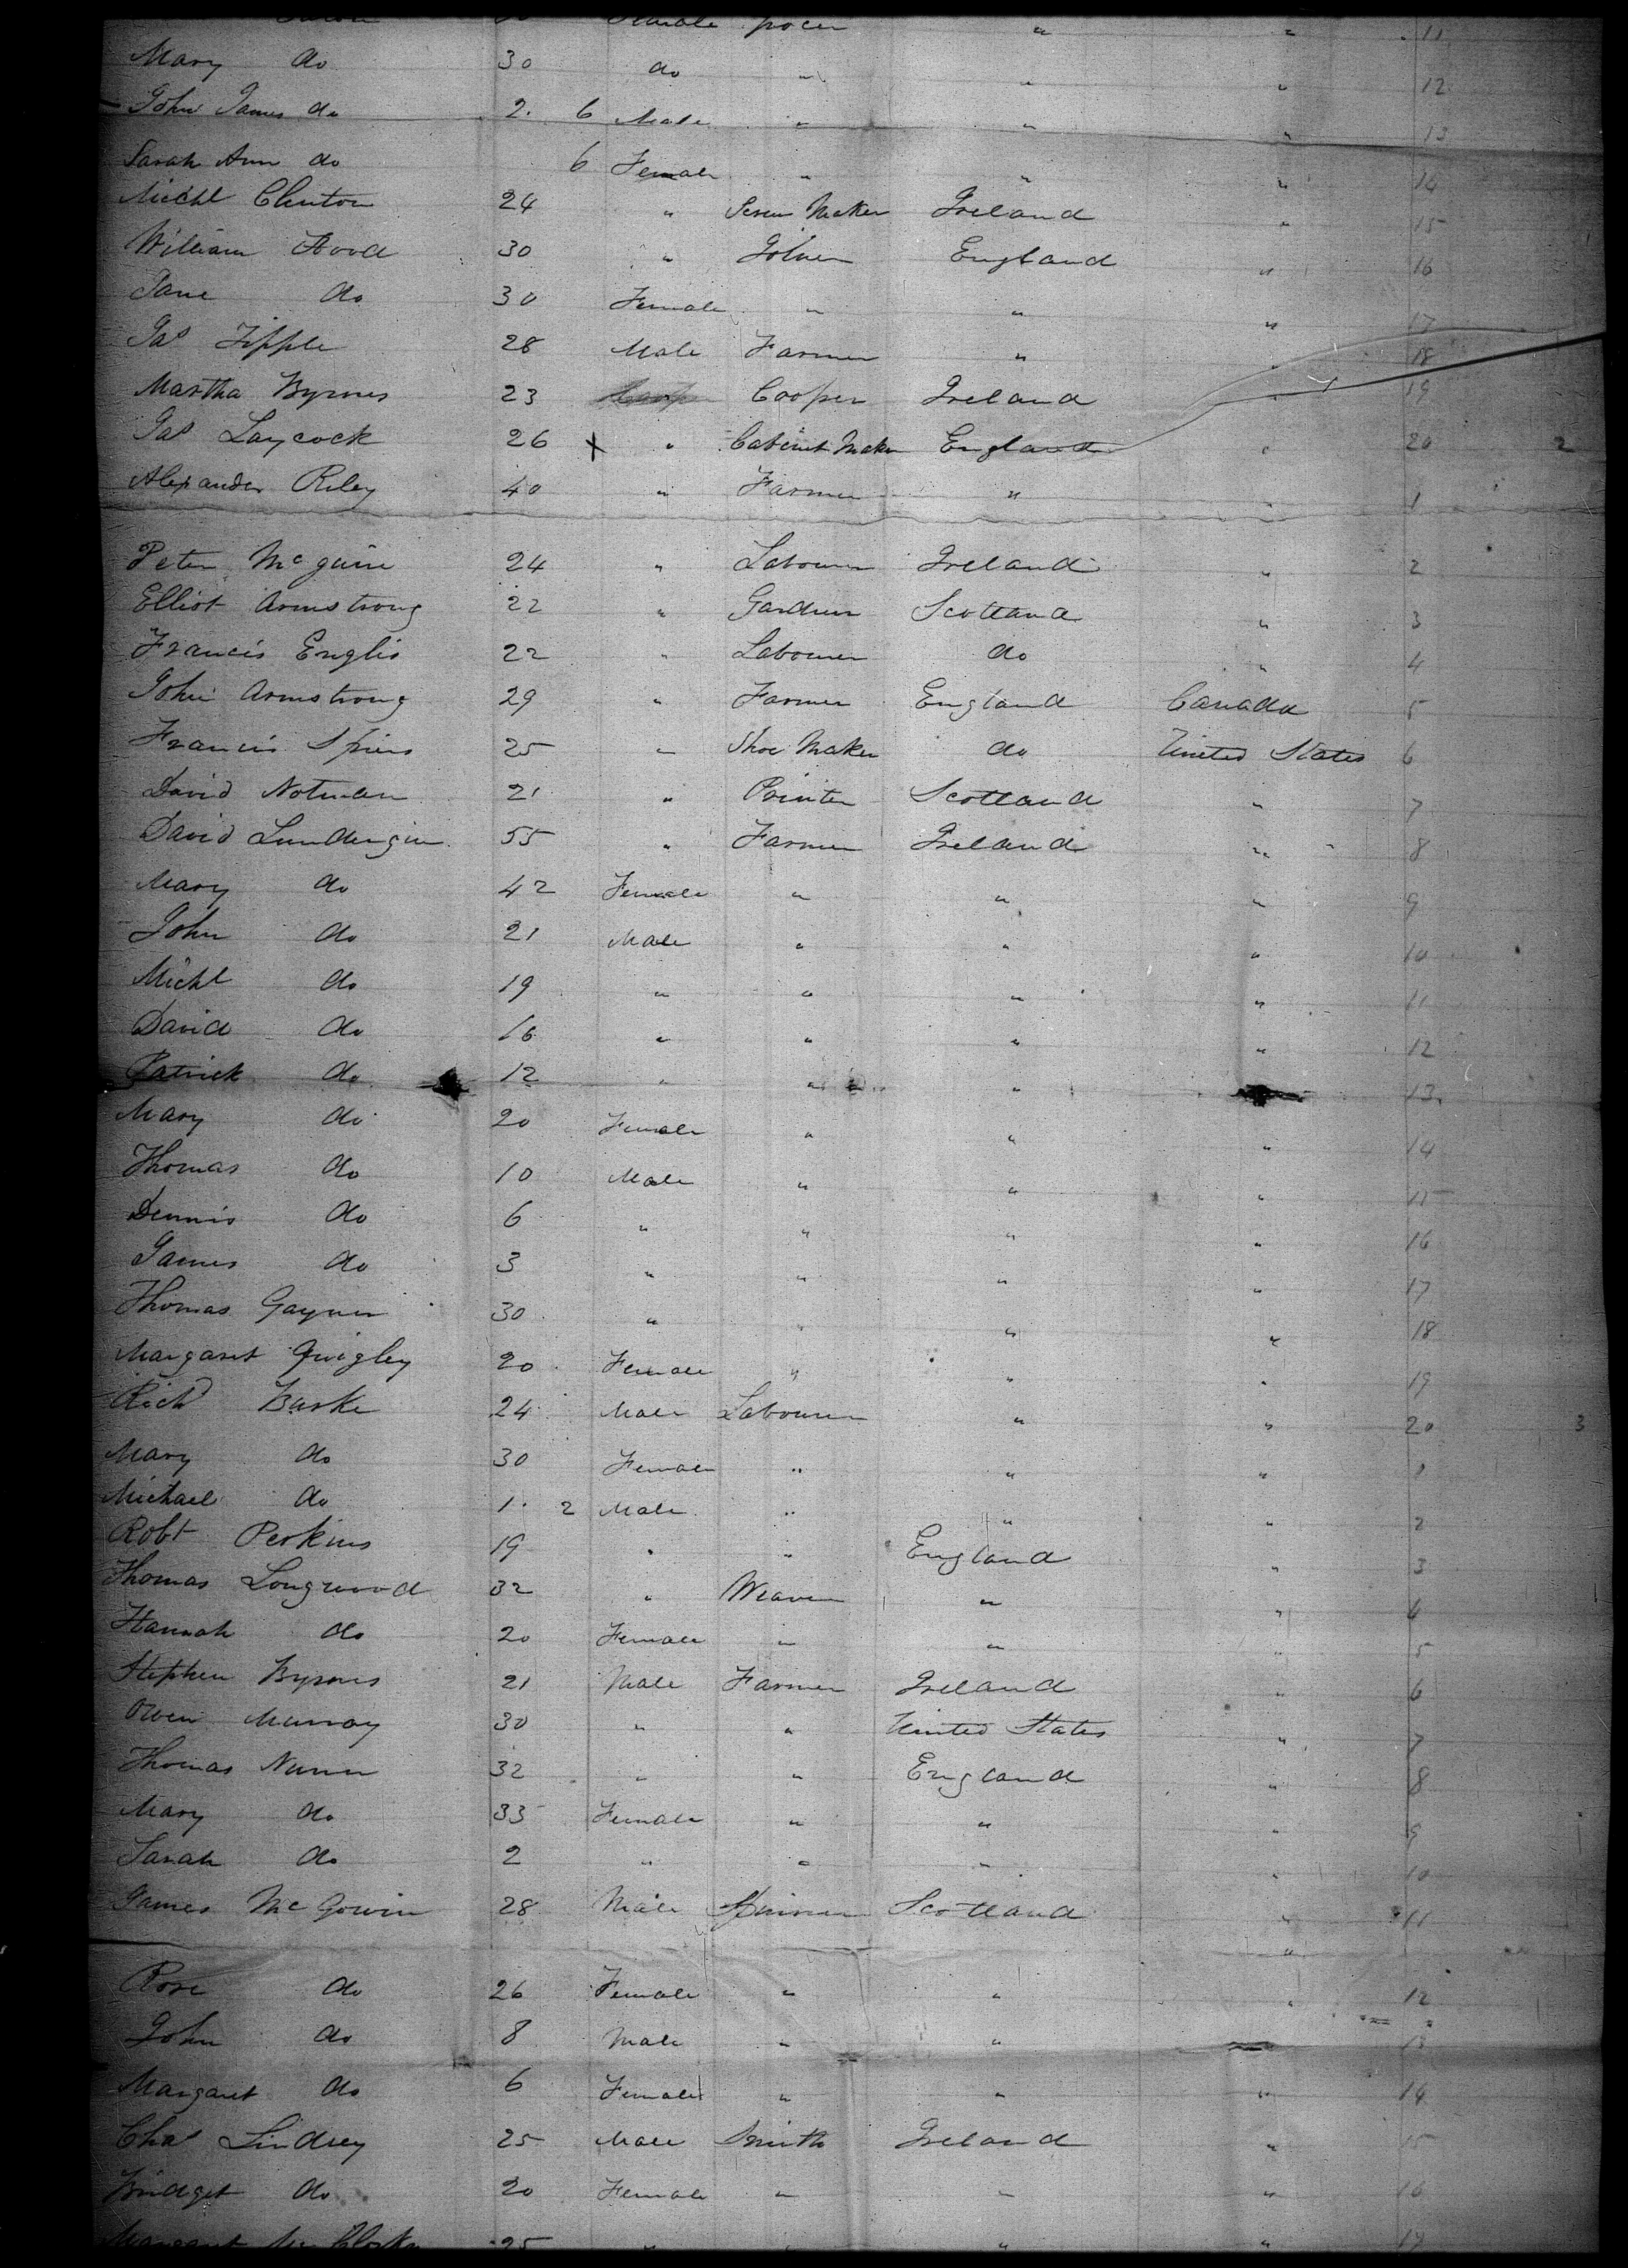 Female " " 11
Mary do 30 do " " " 12
John James do 2. 6 Male " " " 13
Sarah Ann do 6 Female " " " 14
Michl Clinton 24 " Screw Maker Ireland " 15
William Hood 30 " Joiner England " 16
Jane do 30 Female " " " 17
Jas Tipple 28 Male Farmer " " 18
Martha Byrnes 23 Cooper Ireland " 19
Jas Laycock 26 x " Cabinet Maker England " 20 2
Alexander Riley 40 " Farmer " " 1
Peter McGuire 24 " Labourer Ireland " 2
Elliot Armstrong 22 " Gardner Scotland " 3
Francis Englis 22 " Labourer do " 4
John Armstrong 29 " Farmer England Canada 5
Francis Spiers 25 " Shoe Maker do United States 6
David Notman 21 " Printer Scotland " 7
David Lundergin 55 " Farmer Ireland " 8
Mary do 42 Female " " " 9
John do 21 Male " " " 10
Michl do 19 " " " " 11
David do 16 " " " " 12
Patrick do 12 " " " 13
Mary do 20 Female " " " 14
Thomas do 10 Male " " " 15
Dennis do 6 " " " " 16
James do 3 " " " " 17
Thomas Gaynor 30 " " " " 18
Margaret Quigley 20 Female " " " 19
Richd Burke 24 Male Labourer " " 20 3
Mary do 30 Female " " " 1
Michael do 1. 2 Male " " " 2
Robt Perkins 19 " " England " 3
Thomas Longwood 32 " Weaver " " 4
Hannah do 20 Female " " " 5
Stephen Byrnes 21 Male Farmer Ireland " 6
Owen Murray 30 " " United States " 7
Thomas Nunn 32 " " England " 8
Mary do 33 Female " " " 9
Sarah do 2 " " " " 10
James McGowin 28 Male Spinner Scotland " 11
Rose do 26 Female " " " 12
John do 8 Male " " 13
Margaret do 6 Female " " " 14
Chas Lindsey 25 Male Smith Ireland " 15
Bridget do 20 Female " " " 16
Margaret 25 " " " " 17